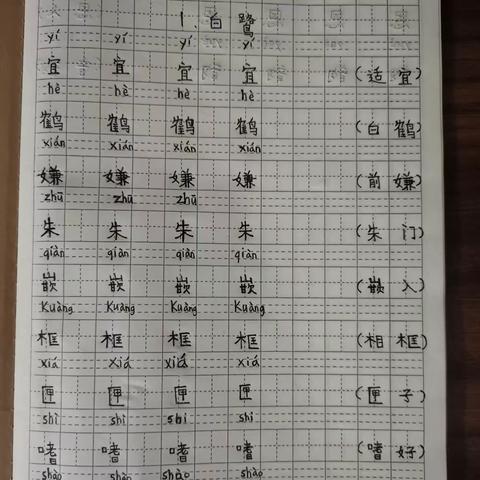 1、白鹭
yí yí yí yí
宜 宜 宜 宜 (适宜)
hè hè hè hè
鹤 鹤 鹤 鹤 (白鹤)
xián xián xián xián
嫌 嫌 嫌 嫌 (前嫌)
zhū zhū zhū
朱 朱 朱 朱 (朱门)
qiàn qiàn qiàn qiàn
嵌 嵌 嵌 嵌 (嵌入)
Kuàng Kuàng Kuàng Kuàng
框 框 框 框 (相框)
xiá xiá xiá xiá
匣 匣 匣 匣 (匣子)
shì shì shì shì
嗜 嗜 嗜 嗜 (嗜好)
shào shào shào shào